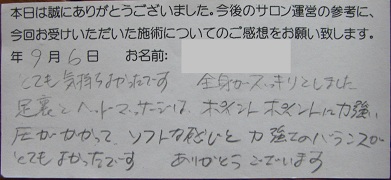 本日は誠にありがとうございました。今後のサロン運営の参考に、
今回お受けいただいた施術についてのご感想をお願い致します。
年 9月 6日 お名前:
とても気持ちよかったです 全身がスッキリとしました
足裏とヘッドマッサージは、ポイントポイントに力強い
圧がかかって、ソフトな感じと力強さのバランスが
とてもよかったです ありがとうございます